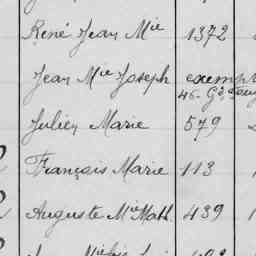 René Jean Mie 1372
Jean Mie Joseph exempt
46-
Julien Marie 579
François Marie 113
Auguste Mie Math. 439